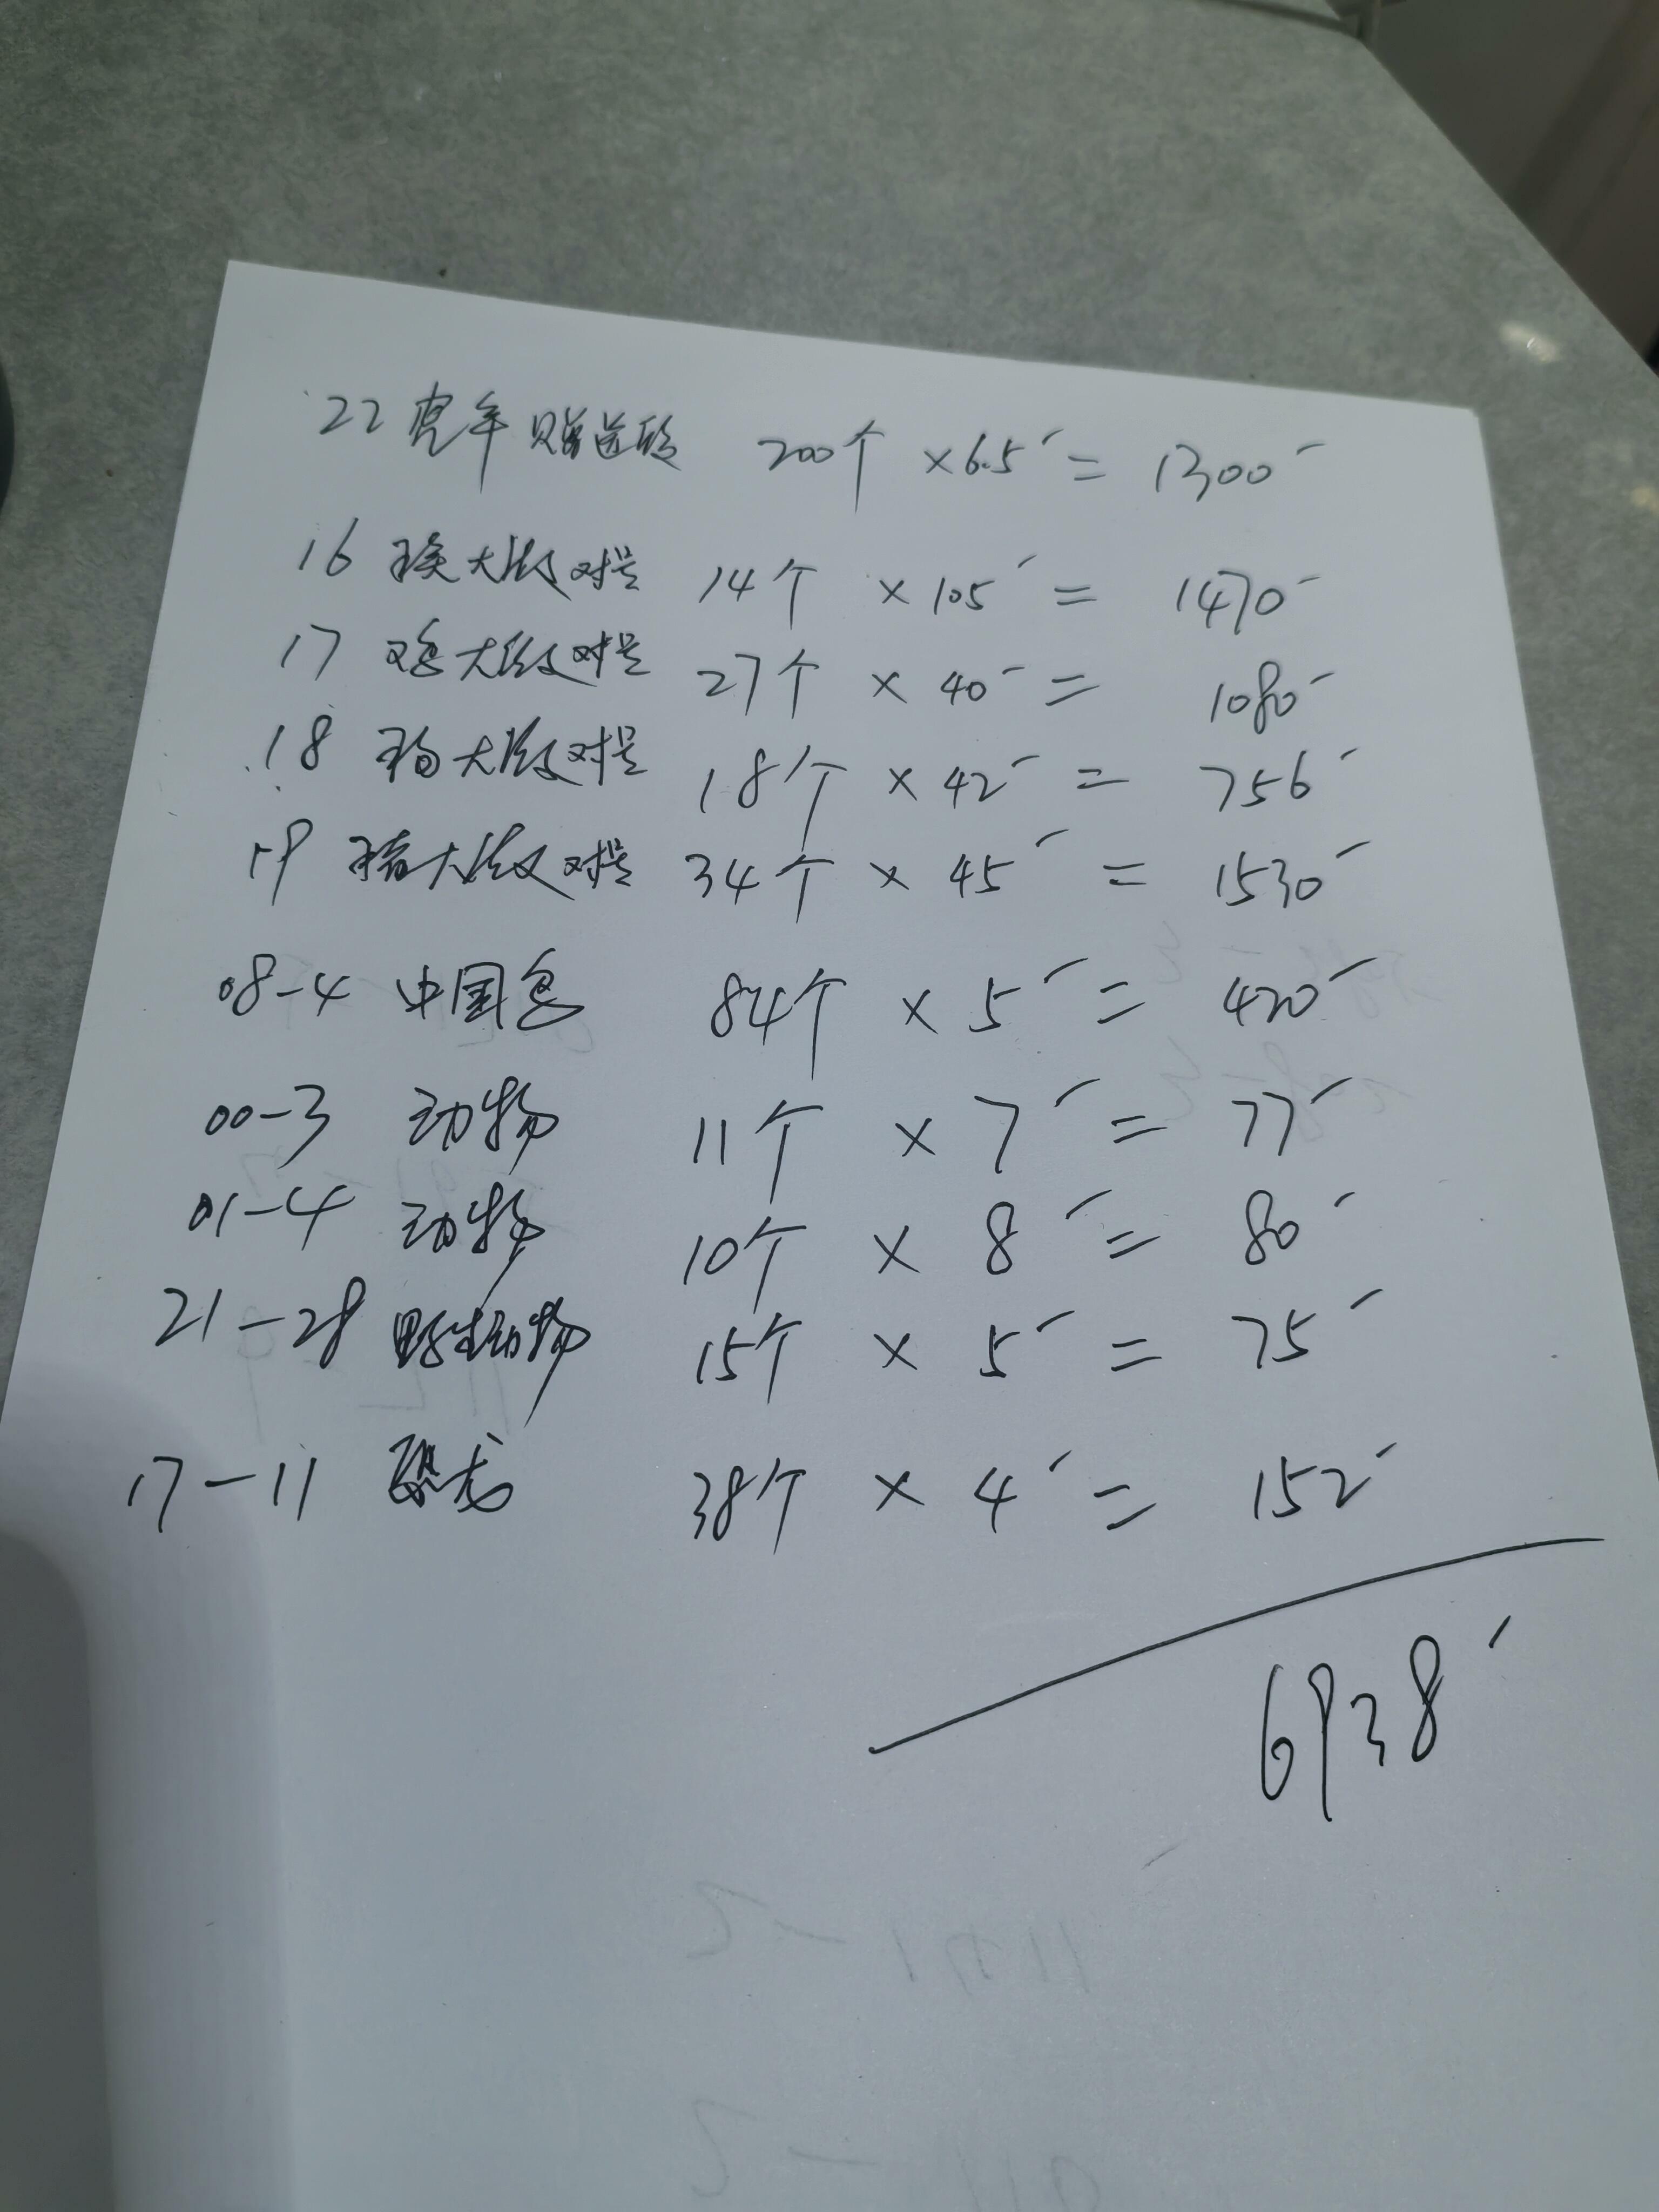 22 虎年 赠送版 200个 ×6.5 = 1300
16 猴大版对号 14个 ×105 = 1470
17 鸡大版对号 27个 × 40 = 1080
18 狗大版对号 18个 × 42 = 756
19 猪大版对号 34个 × 45 = 1530
08-4 中国鸟 84个 × 5 = 420
00-3 动物 11个 × 7 = 77
01-4 动物 10个 × 8 = 80
21-28 野生动物 15个 × 5 = 75
17-11 恐龙 38个 × 4 = 152
6938